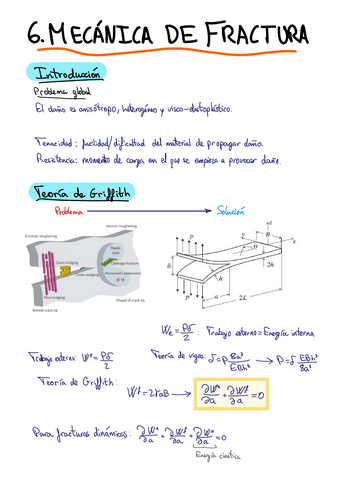 6. MECÁNICA DE FRACTURA
Introducción
Problema global
El daño es anisótropo, heterogéneo y visco-elastoplástico.
Tenacidad: facilidad/dificultad del material de propagar daño.
Resistencia: momento de carga en el que se empieza a provocar daño.
Teoría de Griffith
Problema → Solución
Intrinsic toughening
Extrinsic toughening
Plastic zone
Cleavage fracture
Grain bridging
Oxide wedging
Microvoid coalescence
Fibre bridging
Behind crack tip
Ahead of crack tip
P
z
y
B
x
δ
h
2h
a
2L
P
We = Pδ/2 : Trabajo externo = Energía interna
Trabajo externo: Wᵉ = Pδ/2
Teoría de vigas: δ = P 8a³/EBh³ → P = δ EBh³/8a³
Teoría de Griffith:
Wᶠ = 2γaB → ∂Wᵉ/∂a + ∂Wᶠ/∂a = 0
Para fracturas dinámicas: ∂Wᵉ/∂a + ∂Wᶠ/∂a + ∂Wᵏ/∂a = 0
Energía cinética